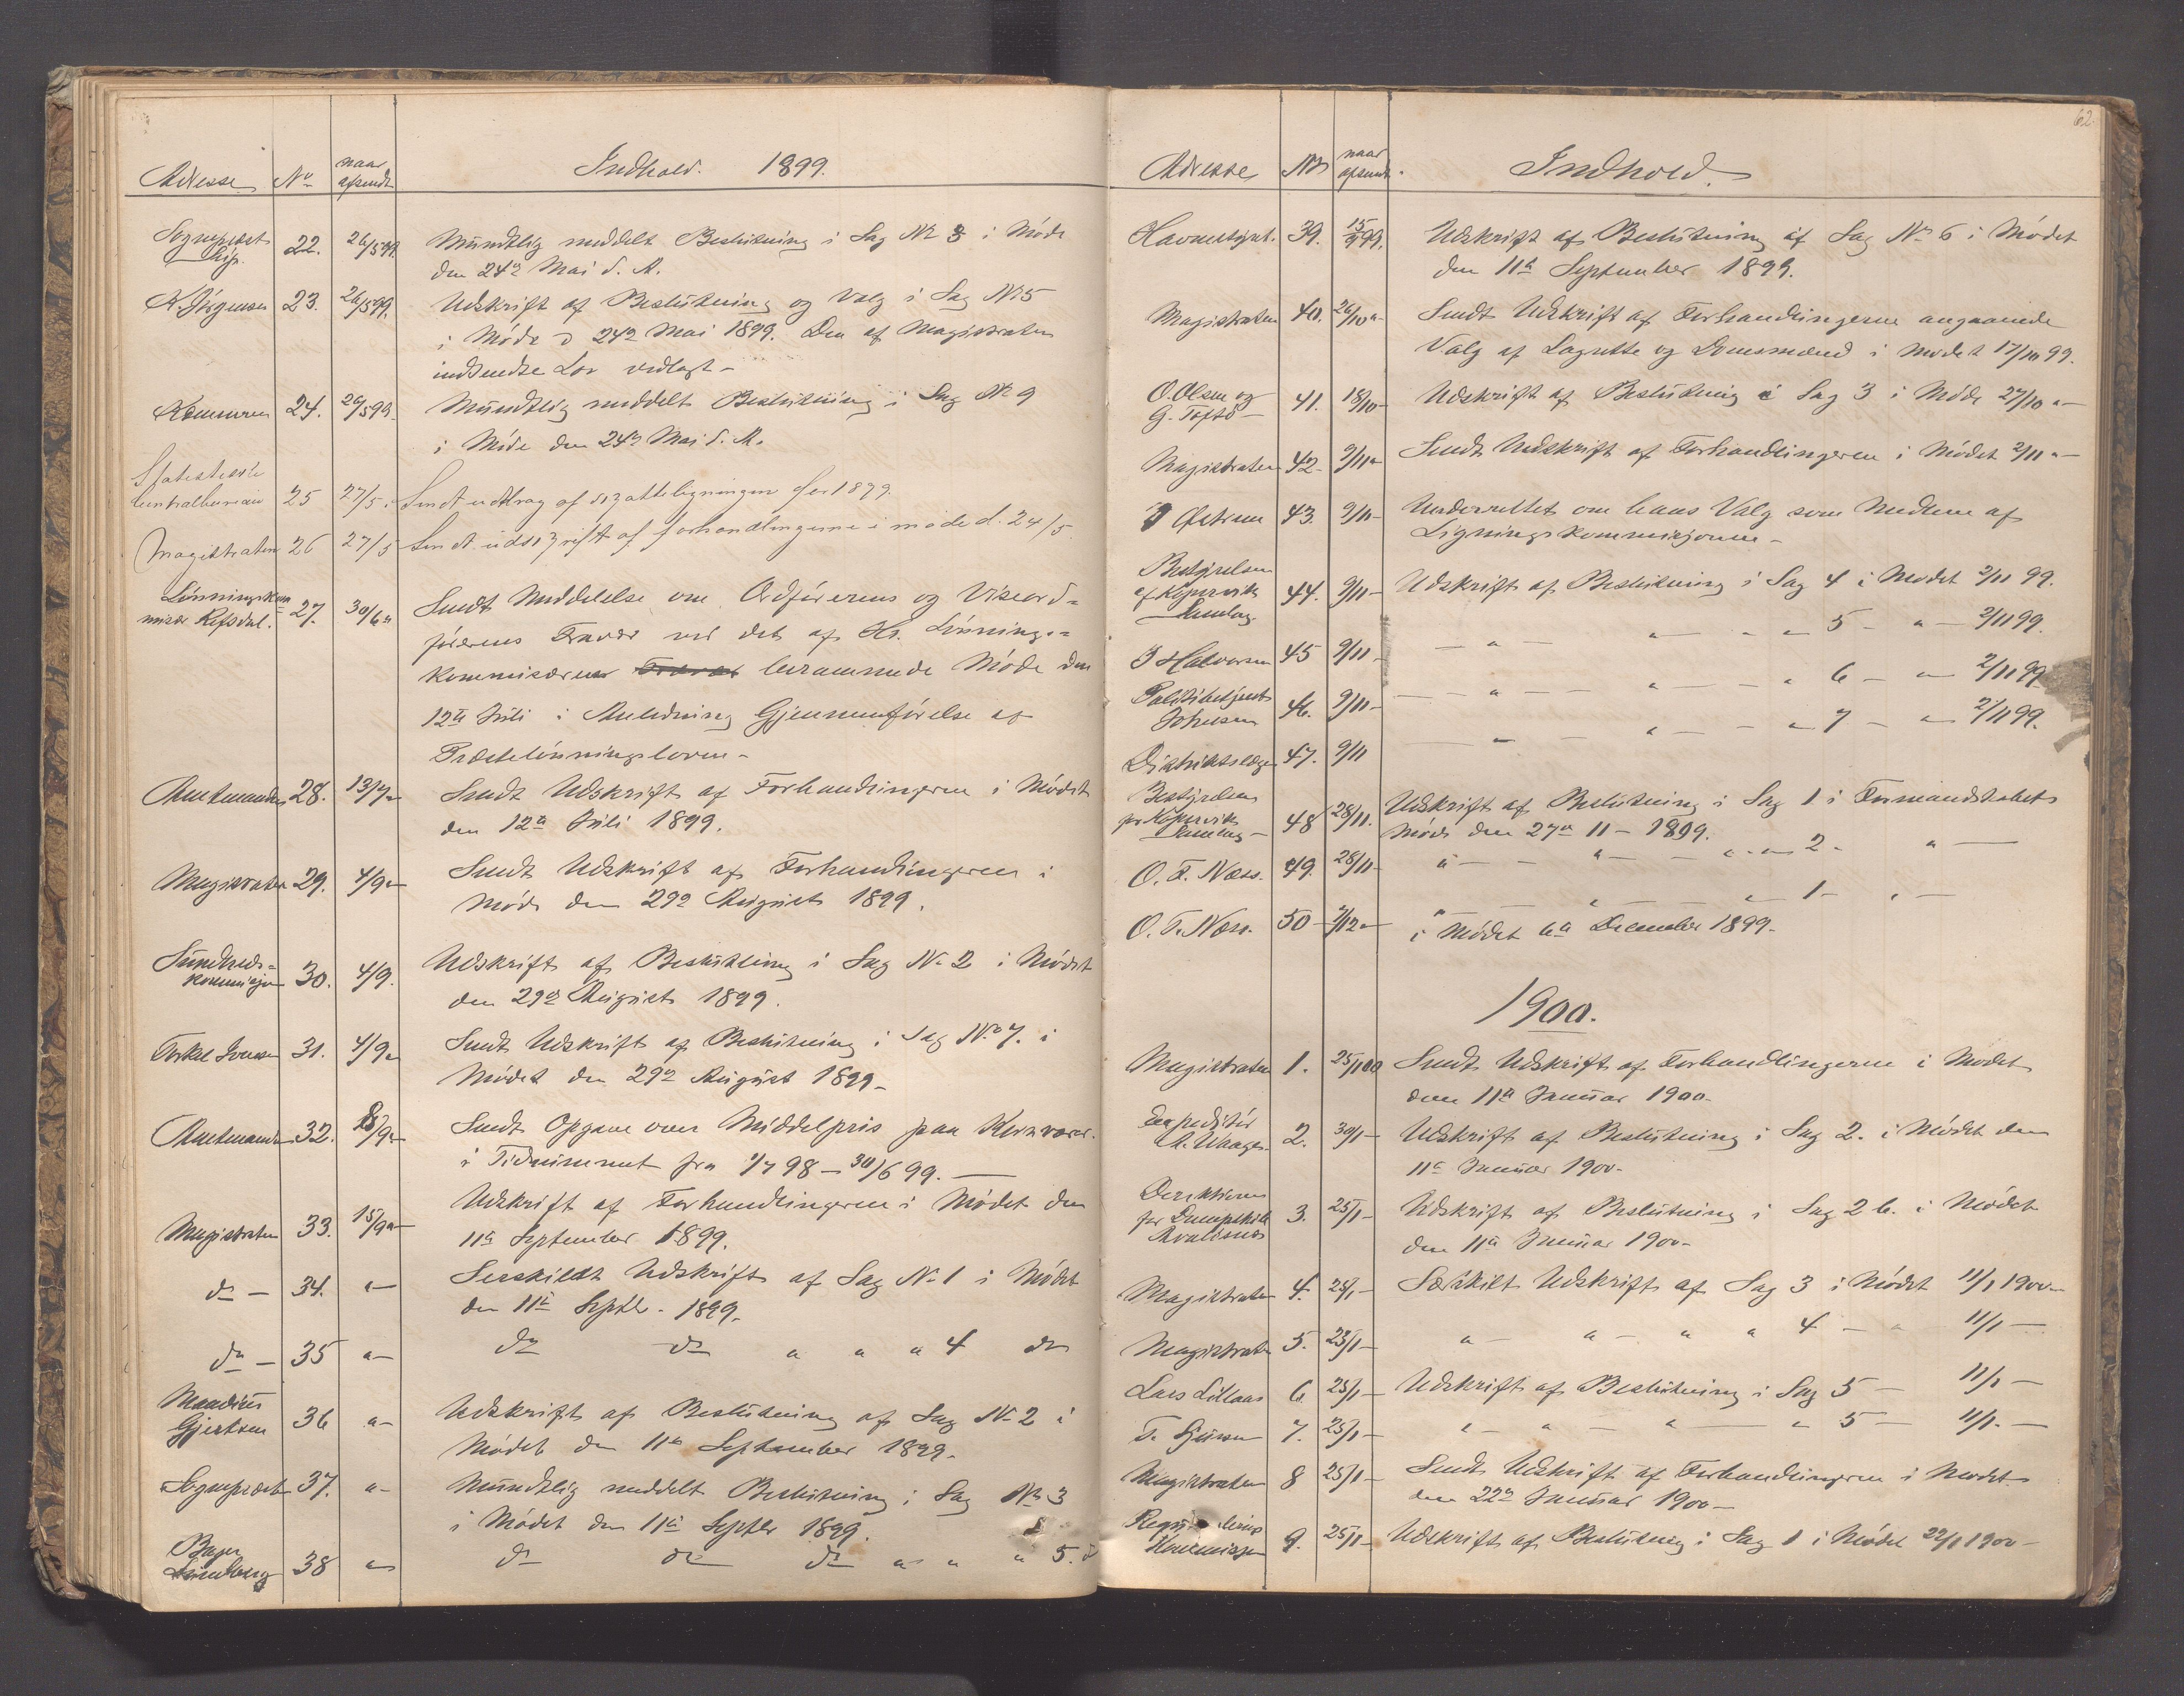 Adresse No naar afsendt Indhold. 1899.
Sogneprest 22. 26/5 99. Mundtlig meddelt Beslutning i Sag No 3 i Møde
den 24de Mai d. A.
K. Jørgensen 23. 26/5 99. Udskrift af Beslutning og Valg i Sag No 5
i Møde d 24de Mai 1899. Den af Magistraten
indsendte Lov vedlagt –
Kemneren 24. 26/5 99. Mundtlig meddelt Beslutning i Sag No 9
i Møde den 24de Mai d. A.
Statistiske
Centralbureau 25 27/5 Sendt uddrag af skatteligningen for 1899.
Magistraten 26 27/5 Sendt udskrift af forhandlingerne i møde d. 24/5.
Lønningskom
misær Refsdal. 27. 30/6 " Sendt Meddelelse om Ordførerens og Viseord=
førerens Fravær ved det af Hr. Lønnings=
kommisæren Fravær berammede Møde den
12te Juli i Anledning Gjennemførelse af
Præstelønningsloven –
Amtmanden 28. 13/7 " Sendt Udskrift af Forhandlingerne i Mødet
den 12te Juli 1899.
Magistraten 29. 4/9 " Sendt Udskrift af Forhandlingerne i
Møde den 29de August 1899.
Sundheds=
kommisjon 30. 4/9. Udskrift af Beslutning i Sag No 2 i Mødet
den 29de August 1899.
Torkel Iversen 31. 4/9 " Sendt Udskrift af Beslutning i Sag No 7. i
Mødet den 29de August 1899 –
Amtmanden 32. 8/9 " Sendt Opgave over Middelpris paa Kornvarer.
i Tidsrummet fra 1/7 98 – 30/6 99. –
Magistraten 33. 15/9 " Udskrift af Forhandlingerne i Mødet den
11te September 1899.
do – 34. " – Serskildt Udskrift af Sag No 1 i Mødet
den 11te Septbr. 1899.
do – 35 " – do do " " " 4 do
Maudius
Gjertsen 36 " – Udskrift af Beslutning af Sag No 2 i
Mødet den 11te September 1899.
Sogneprest 37. " – Mundtlig meddelt Beslutning i Sag No 3
i Mødet den 11te Septbr 1899.
Bager
Lindberg 38 " – do do do " " " 5. d
62.
Adresse No naar afsendt. Indhold.
Havnebetjent. 39. 15/9 99. Udskrift af Beslutning af Sag No 6 i Mødet
den 11te September 1899.
Magistraten 40. 26/10 " Sendt Udskrift af Forhandlingerne angaaende
Valg af Lagrette og Domsmænd i Mødet 17/10 99.
O. Olsen og
G. Toftø – 41. 18/10 – Udskrift af Beslutning i Sag 3 i Møde 27/10 " –
Magistraten 42 – 9/11 " Sendt Udskrift af Forhandlingerne i Mødet 2/11 " –
Østrem 43. 9/11 – Underrettet om hans Valg som Medlem af
Ligningskommisjonen –
Bestyrelsen
af Kopervik
Samlag. 44. 9/11 – Udskrift af Beslutning i Sag 4 i Mødet 2/11 99.
J Halvorsen 45 9/11 – – " – " – " – " 5 – " – 2/11 99.
Politibetjent
Johnsen 46. 9/11 – – " – – " – – " 6 – " 2/11 99
Distriktslægen 47. 9/11 – " – " – – " 7 – " 2/11 99.
Bestyrelsen
for Kopervik
Samlag – 48 28/11. Udskrift af Beslutning i Sag 1 i Formandskabets
Møde den 27de 11 – 1899.
O. T. Næss. 49. 28/11 – " – – " – – " – " 2 – " –
O. T. Næss. 50 – 7/12 " " – – " – – " 1 – " –
i Mødet 6te December 1899 –
1900.
Magistraten 1. 25/1 00 Sendt Udskrift af Forhandlingerne i Mødet
den 11te Januar 1900 –
Expeditør
A. Waage. 2. 30/1 – Udskrift af Beslutning i Sag 2. i Mødet den
11te Januar 1900 –
Derektionen
for Dampskib
Avaldsnes 3. 25/1 – Udskrift af Beslutning i Sag 2 b. i Mødet
den 11te Januar 1900 –
Magistraten 4. 25/1 – Særskilt Udskrift af Sag 3 i Mødet 11/1 1900 –
Magistraten 5. 25/1 – " – " – " " 4 – " 11/1 –
Lars Lillaas 6 25/1 – Udskrift af Beslutning i Sag 5 – 11/1 –
7. 25/1 – " – " – " – " 5 – 11/1. –
Magistraten 8 25/1 – Sendt Udskrift af Forhandlingerne i Mødet
den 22de Januar 1900 –
9. 25/1 – Udskrift af Beslutning i Sag 1 i Mødet 22/1 1900 –